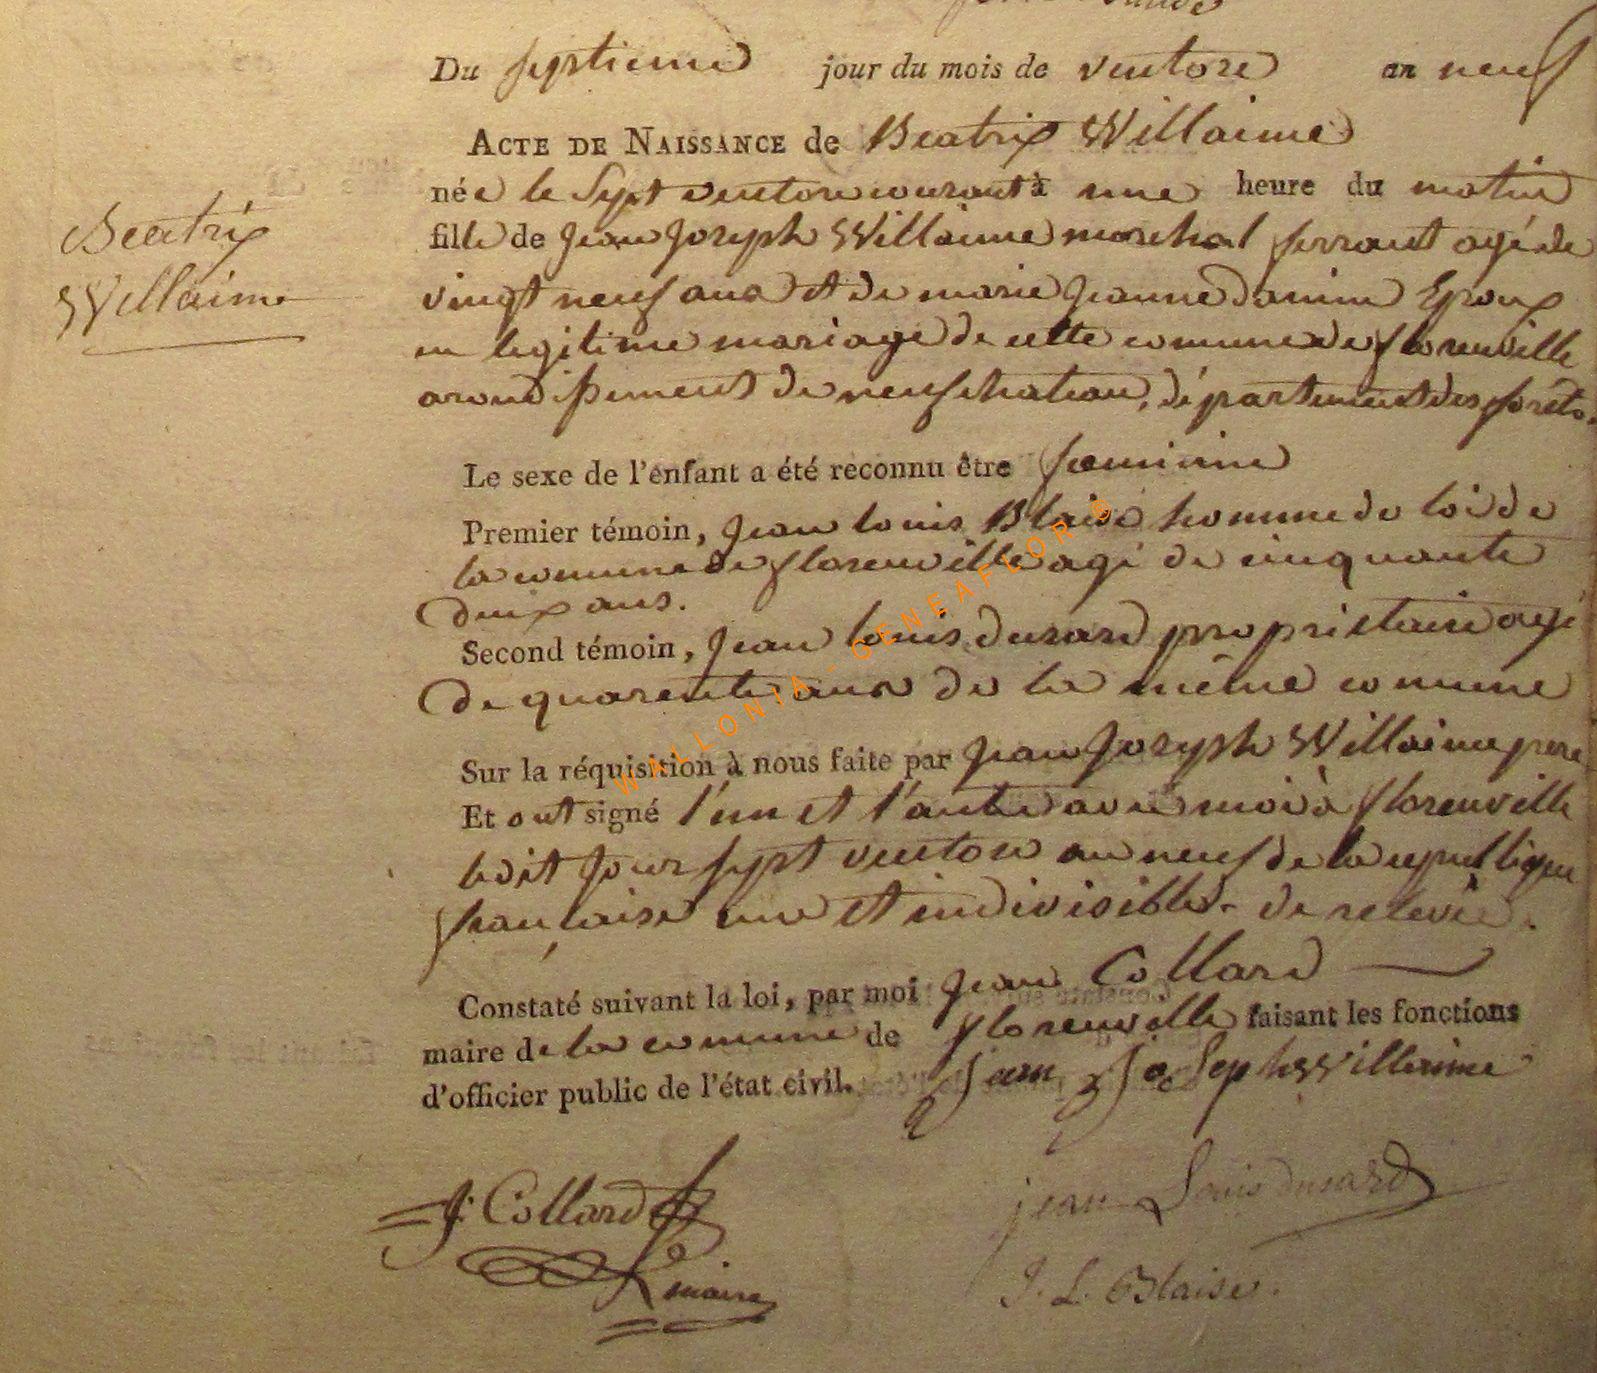 Du septieme jour du mois de ventose an neuf
ACTE DE NAISSANCE de Beatrix Willaime
née le Sept ventose courant à une heure du matin
fille de Jean Joseph Willaime marchal ferrant agé de
vingt neuf ans et de marie Jeanne Epoux
en legitime mariage de cette comune de florenville
arondissement de neufchateau, département des forets.
Beatrix
Willaime
Le sexe de l'enfant a été reconnu être feminine
Premier témoin, Jean louis Blaise homme de loi de
la comune de florenville agé de cinquante
deux ans.
Second témoin, Jean louis dusard propriétaire agé
de quarente ans de la même comune
Sur la réquisition à nous faite par Jean Joseph Willaime pere
Et ont signé l'un et l'autre avec moi à florenville
ledit Jour sept ventose an neuf de la republique
française une et indivisible. de relevée.
Constaté suivant la loi, par moi Jean Collard
maire de la comune de florenville faisant les fonctions
d'officier public de l'état civil. jean joSeph Willaime
J. Collard
maire
jean Louis dusard
J. L. Blaise.
WALLONIA - GENEAFLOR ©